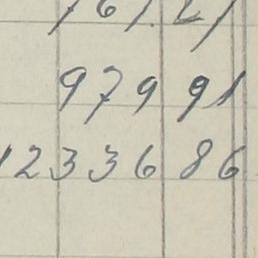 979 91
12336 86